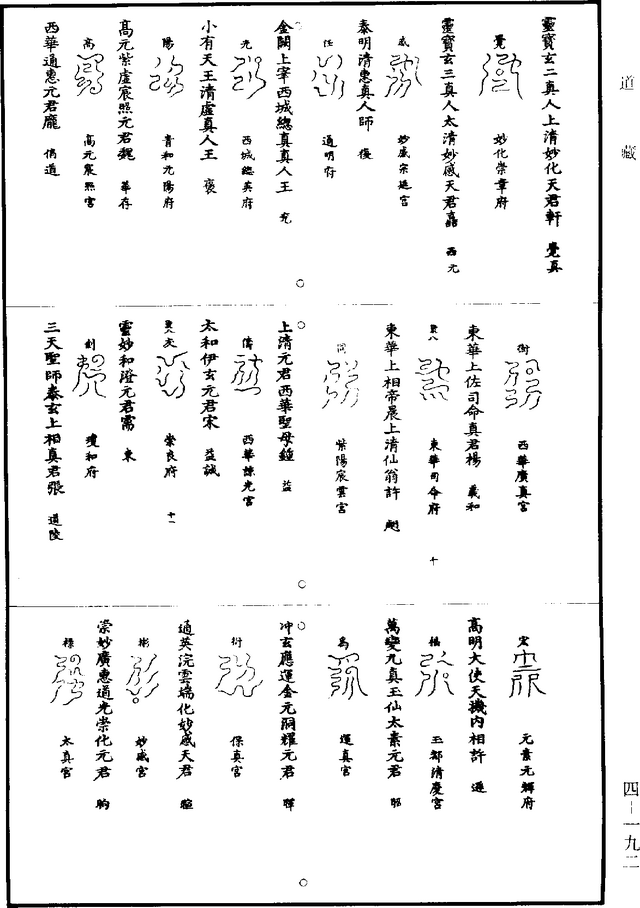 道藏
靈寶玄二真人上清妙化天君軒 覺真
覺 妙化崇章府
靈寶玄三真人太清妙感天君 西元
感 妙感宗延宮
泰明清惠真人師 復
任 通明府
金闕上宰西城總真真人王
光 西城總真府
小有天王清虛真人王 褒
陽 青和元陽府
高元紫虛宸照元君魏 華存
高 高元宸照宮
西華通惠元君龐 倩道
衡 西華廣真宮
東華上佐司命真君楊 羲和
東華司命府 十
東華上相帝晨上清仙翁許 翽
同 紫陽宸雲宮
上清元君西華聖母鐘 益
倩 西華諫光宮
太和伊玄元君宋 益誠
崇良府 十一
靈妙和澄元君需 東
劍 瓊和府
三天聖師泰玄上相真君張 道陵
宏 元素元輝府
高明大使天機內相許 遜
福 玉都清慶宮
萬變九真玉仙太素元君 昭
為 運真宮
冲玄應運金元洞耀元君 暉
衍 保真宮
通英浣雲端化妙感天君
彬 妙感宮
崇妙廣惠道光崇化元君 昫
標 太真宮
四-一九二